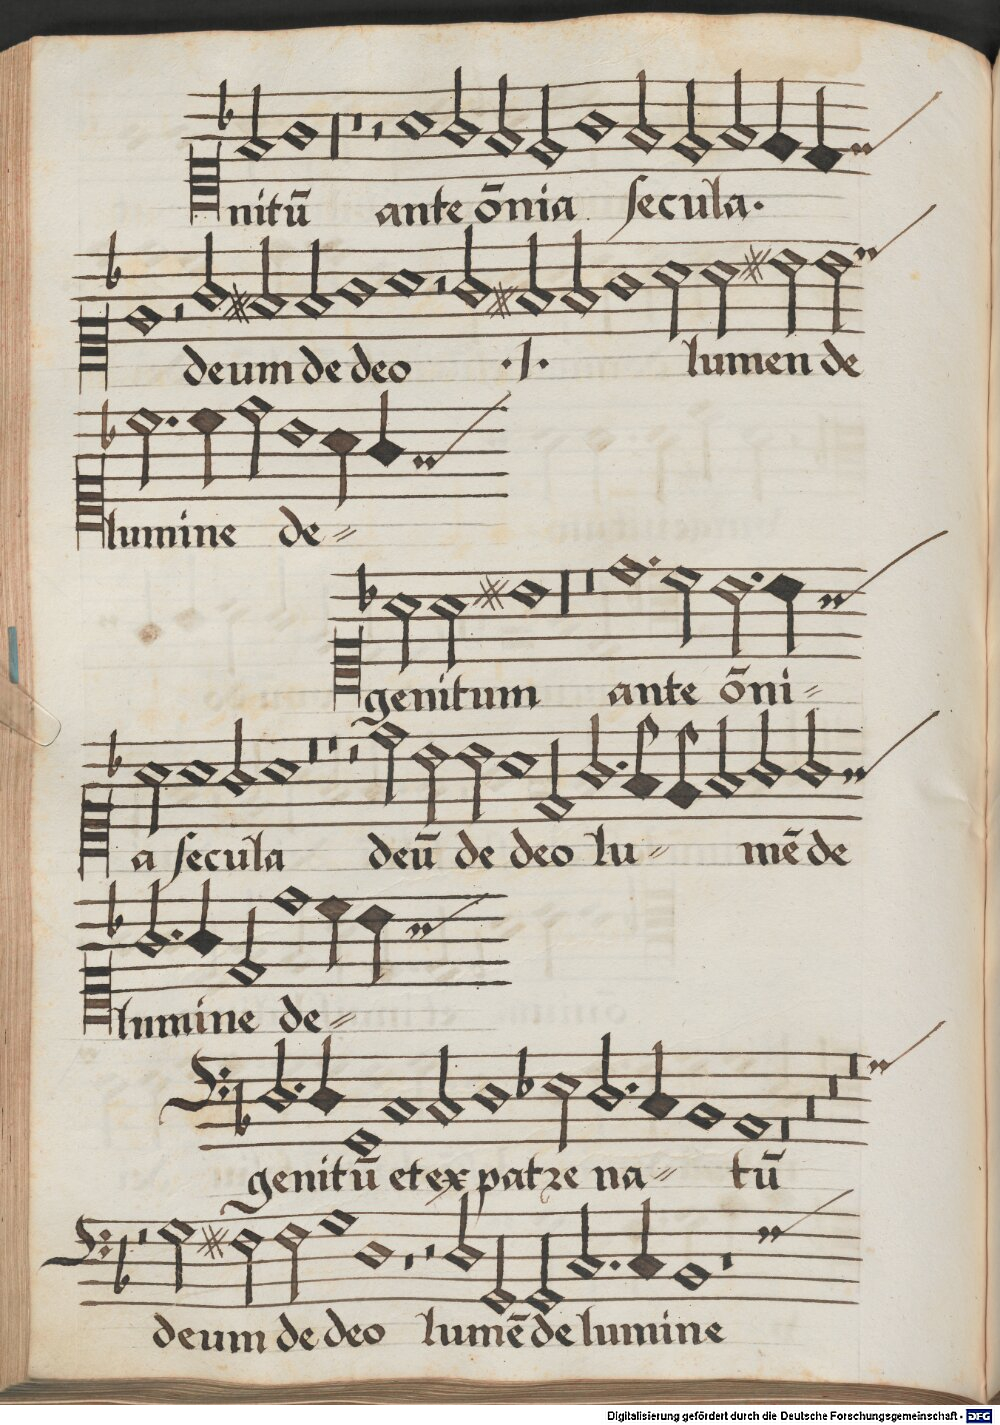 nitū ante ōnia secula.
deum de deo .J. lumen de
lumine de=
genitum ante ōni=
a secula deū de deo lu= mē de
lumine de=
genitū et ex patre na= tū
deum de deo lumē de lumine
Digitalisierung gefördert durch die Deutsche Forschungsgemeinschaft - DFG